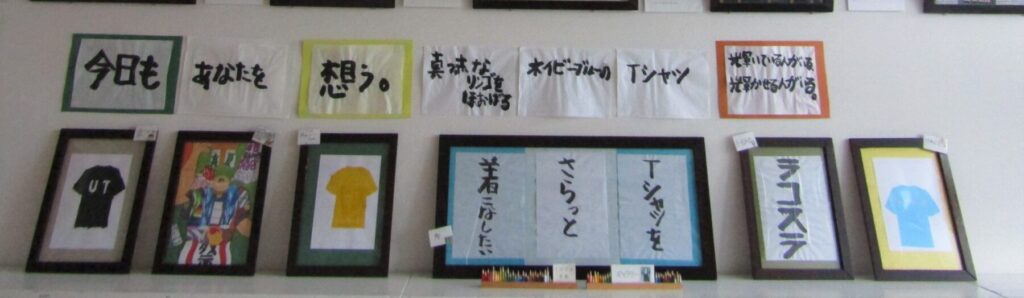 今日も
あなたを
想う。
真っ赤な
リンゴを
ほおばる
ネイビーブルーの
Tシャツ
光輝いている人がいる
光輝かせる人がいる。
UT
Tシャツを
さらっと
着こなしたい
ラコステ